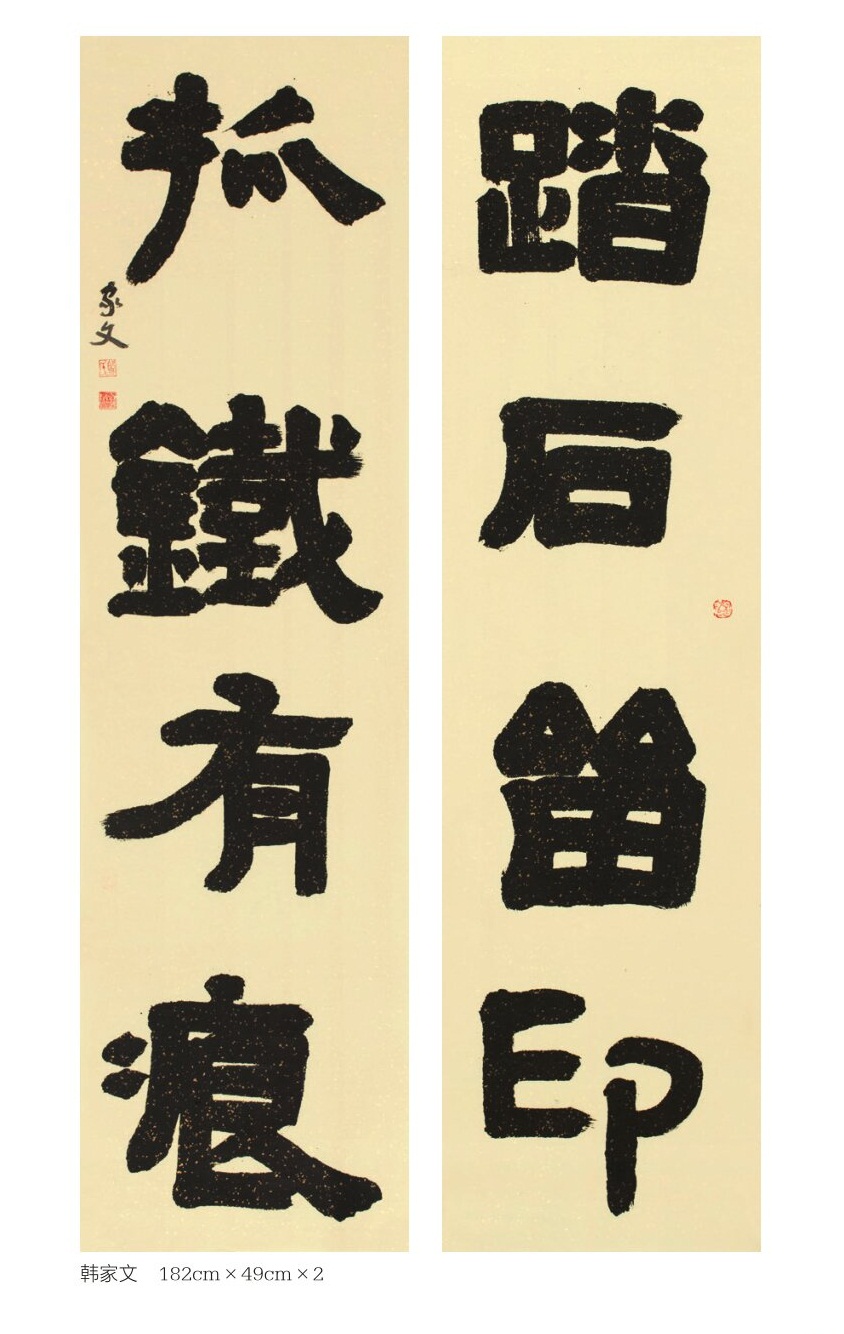 踏石留印
抓鐵有痕
家文
韩家文 182cm×49cm×2